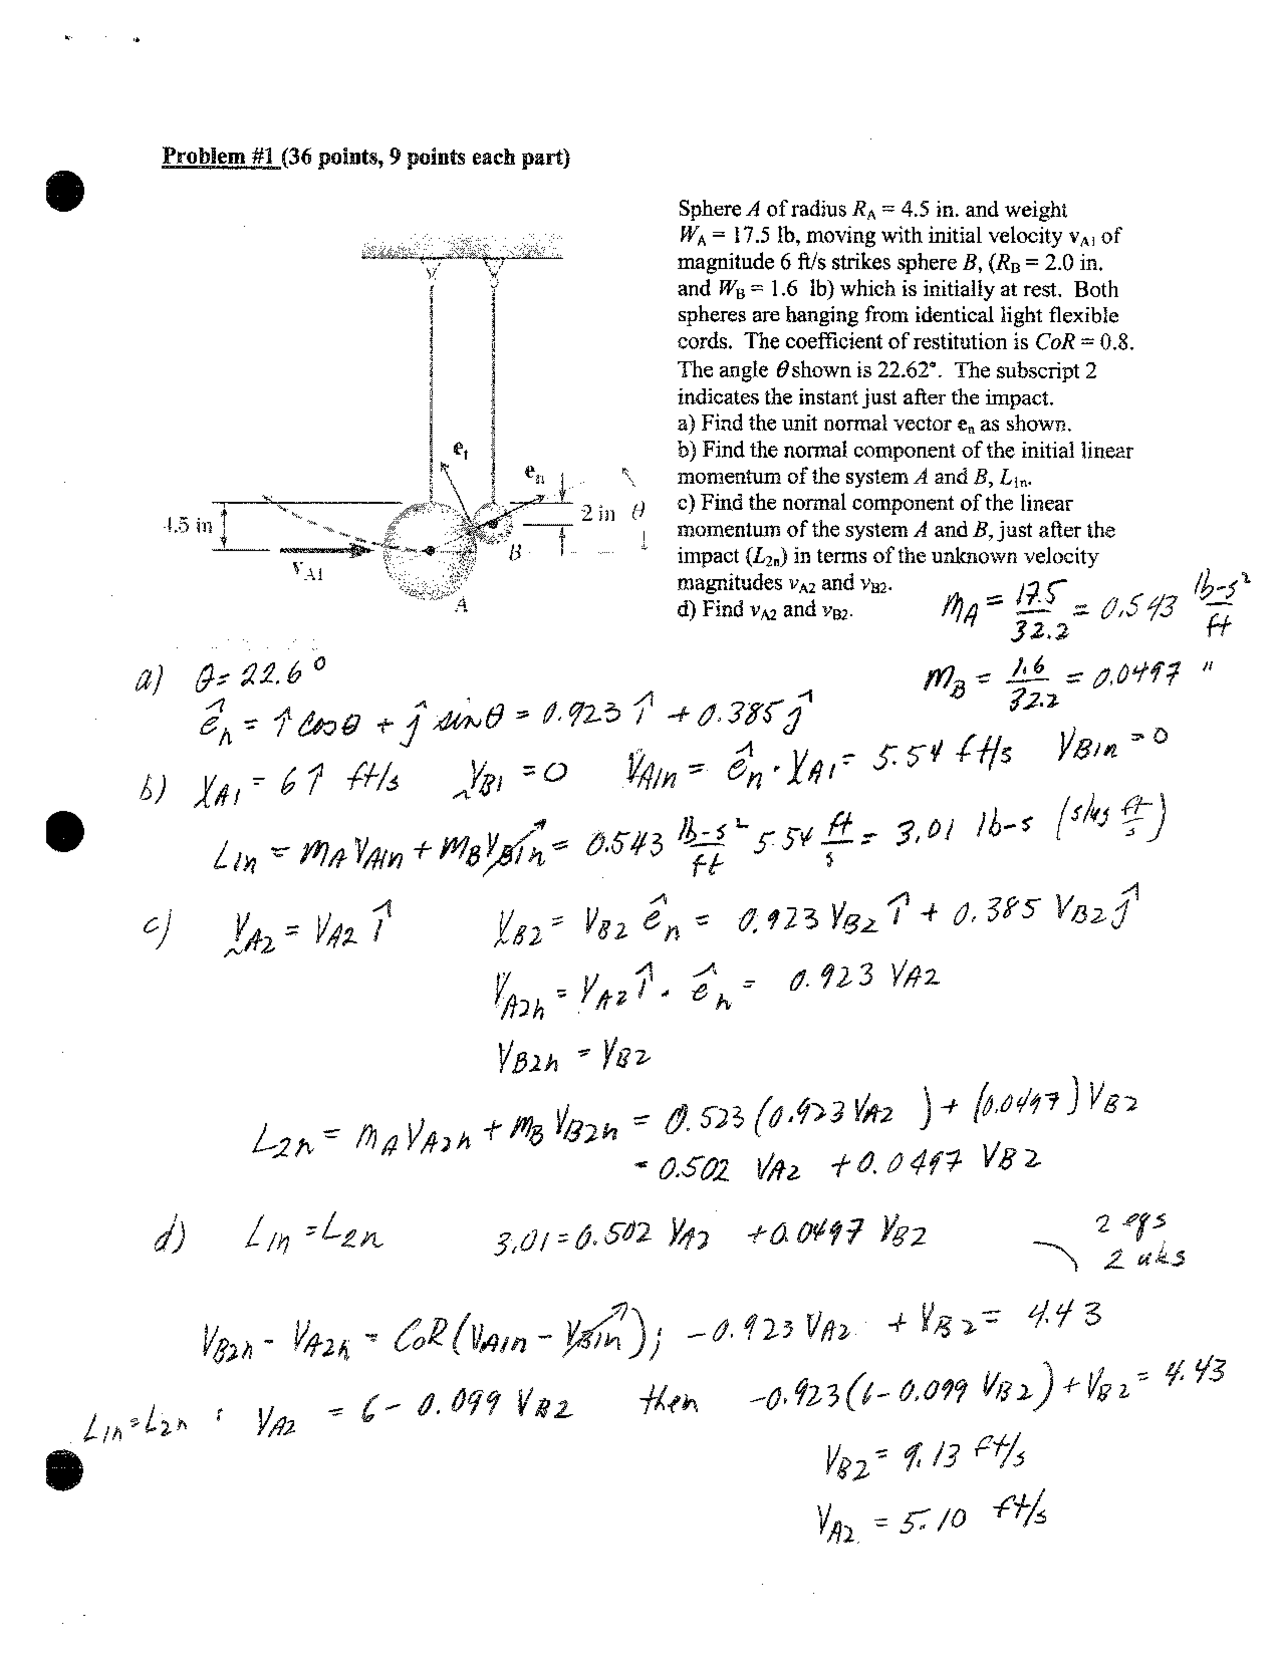 Problem #1 (36 points, 9 points each part)
Sphere A of radius R_A = 4.5 in. and weight
W_A = 17.5 lb, moving with initial velocity v_A1 of
magnitude 6 ft/s strikes sphere B, (R_B = 2.0 in.
and W_B = 1.6 lb) which is initially at rest. Both
spheres are hanging from identical light flexible
cords. The coefficient of restitution is CoR = 0.8.
The angle θ shown is 22.62°. The subscript 2
indicates the instant just after the impact.
a) Find the unit normal vector e_n as shown.
b) Find the normal component of the initial linear
momentum of the system A and B, L_1n.
c) Find the normal component of the linear
momentum of the system A and B, just after the
impact (L_2n) in terms of the unknown velocity
magnitudes v_A2 and v_B2.
d) Find v_A2 and v_B2.
e_t
e_n
4.5 in
2 in θ
v_A1
B
A
m_A = 17.5/32.2 = 0.543 lb-s²/ft
m_B = 1.6/32.2 = 0.0497 "
a) θ = 22.6°
ê_n = î cosθ + ĵ sinθ = 0.923 î + 0.385 ĵ
b) V_A1 = 6 î ft/s V_B1 = 0 V_A1n = ê_n · V_A1 = 5.54 ft/s V_B1n = 0
L_1n = m_A V_A1n + m_B V_B1n = 0.543 lb-s²/ft 5.54 ft/s = 3.01 lb-s (slug ft/s)
c) V_A2 = V_A2 î V_B2 = V_B2 ê_n = 0.923 V_B2 î + 0.385 V_B2 ĵ
V_A2n = V_A2 î · ê_n = 0.923 V_A2
V_B2n = V_B2
L_2n = m_A V_A2n + m_B V_B2n = 0.523 (0.923 V_A2 ) + (0.0497) V_B2
= 0.502 V_A2 + 0.0497 V_B2
d) L_1n = L_2n 3.01 = 0.502 V_A2 + 0.0497 V_B2 2 eqs
2 uks
V_B2n - V_A2n = CoR (V_A1n - V_B1n); -0.923 V_A2 + V_B2 = 4.43
L_1n = L_2n : V_A2 = 6 - 0.099 V_B2 then -0.923 (6 - 0.099 V_B2) + V_B2 = 4.43
V_B2 = 9.13 ft/s
V_A2 = 5.10 ft/s